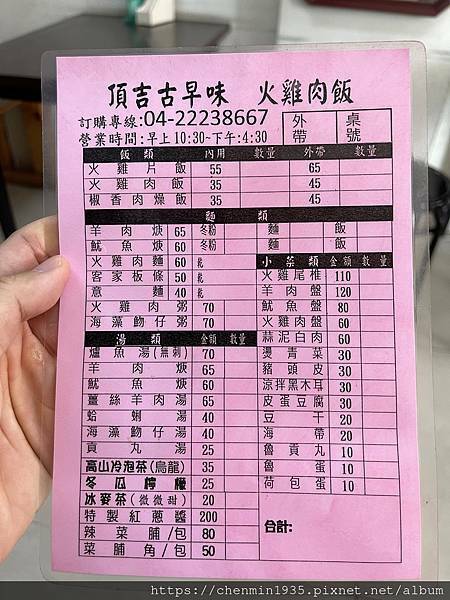 頂吉古早味 火雞肉飯
訂購專線:04-22238667
營業時間:早上10:30~下午:4:30
外帶 桌號
飯類 內用 數量 外帶 數量
火雞片飯 55 65
火雞肉飯 35 45
椒香肉燥飯 35 45
麵類
羊肉焿 65 冬粉 麵 飯
魷魚焿 60 冬粉 麵 飯
火雞肉麵 60 乾
客家板條 50 乾
意麵 40 乾
火雞肉粥 70
海藻魩仔粥 70
湯類 金額 數量
爐魚湯(無刺) 70
羊肉焿 65
魷魚焿 60
薑絲羊肉湯 65
蛤蜊湯 40
海藻魩仔湯 40
貢丸湯 25
高山冷泡茶(烏龍) 35
冬瓜檸檬 25
冰麥茶(微微甜) 20
特製紅蔥醬 200
辣菜脯/包 80
菜脯角/包 50
小菜類 金額 數量
火雞尾椎 110
羊肉盤 120
魷魚盤 80
火雞肉盤 60
蒜泥白肉 60
燙青菜 30
豬頭皮 30
涼拌黑木耳 30
皮蛋豆腐 30
豆干 20
海帶 20
魯貢丸 10
魯蛋 10
荷包蛋 10
合計:
https://chenmin1935.pixnet.net/album